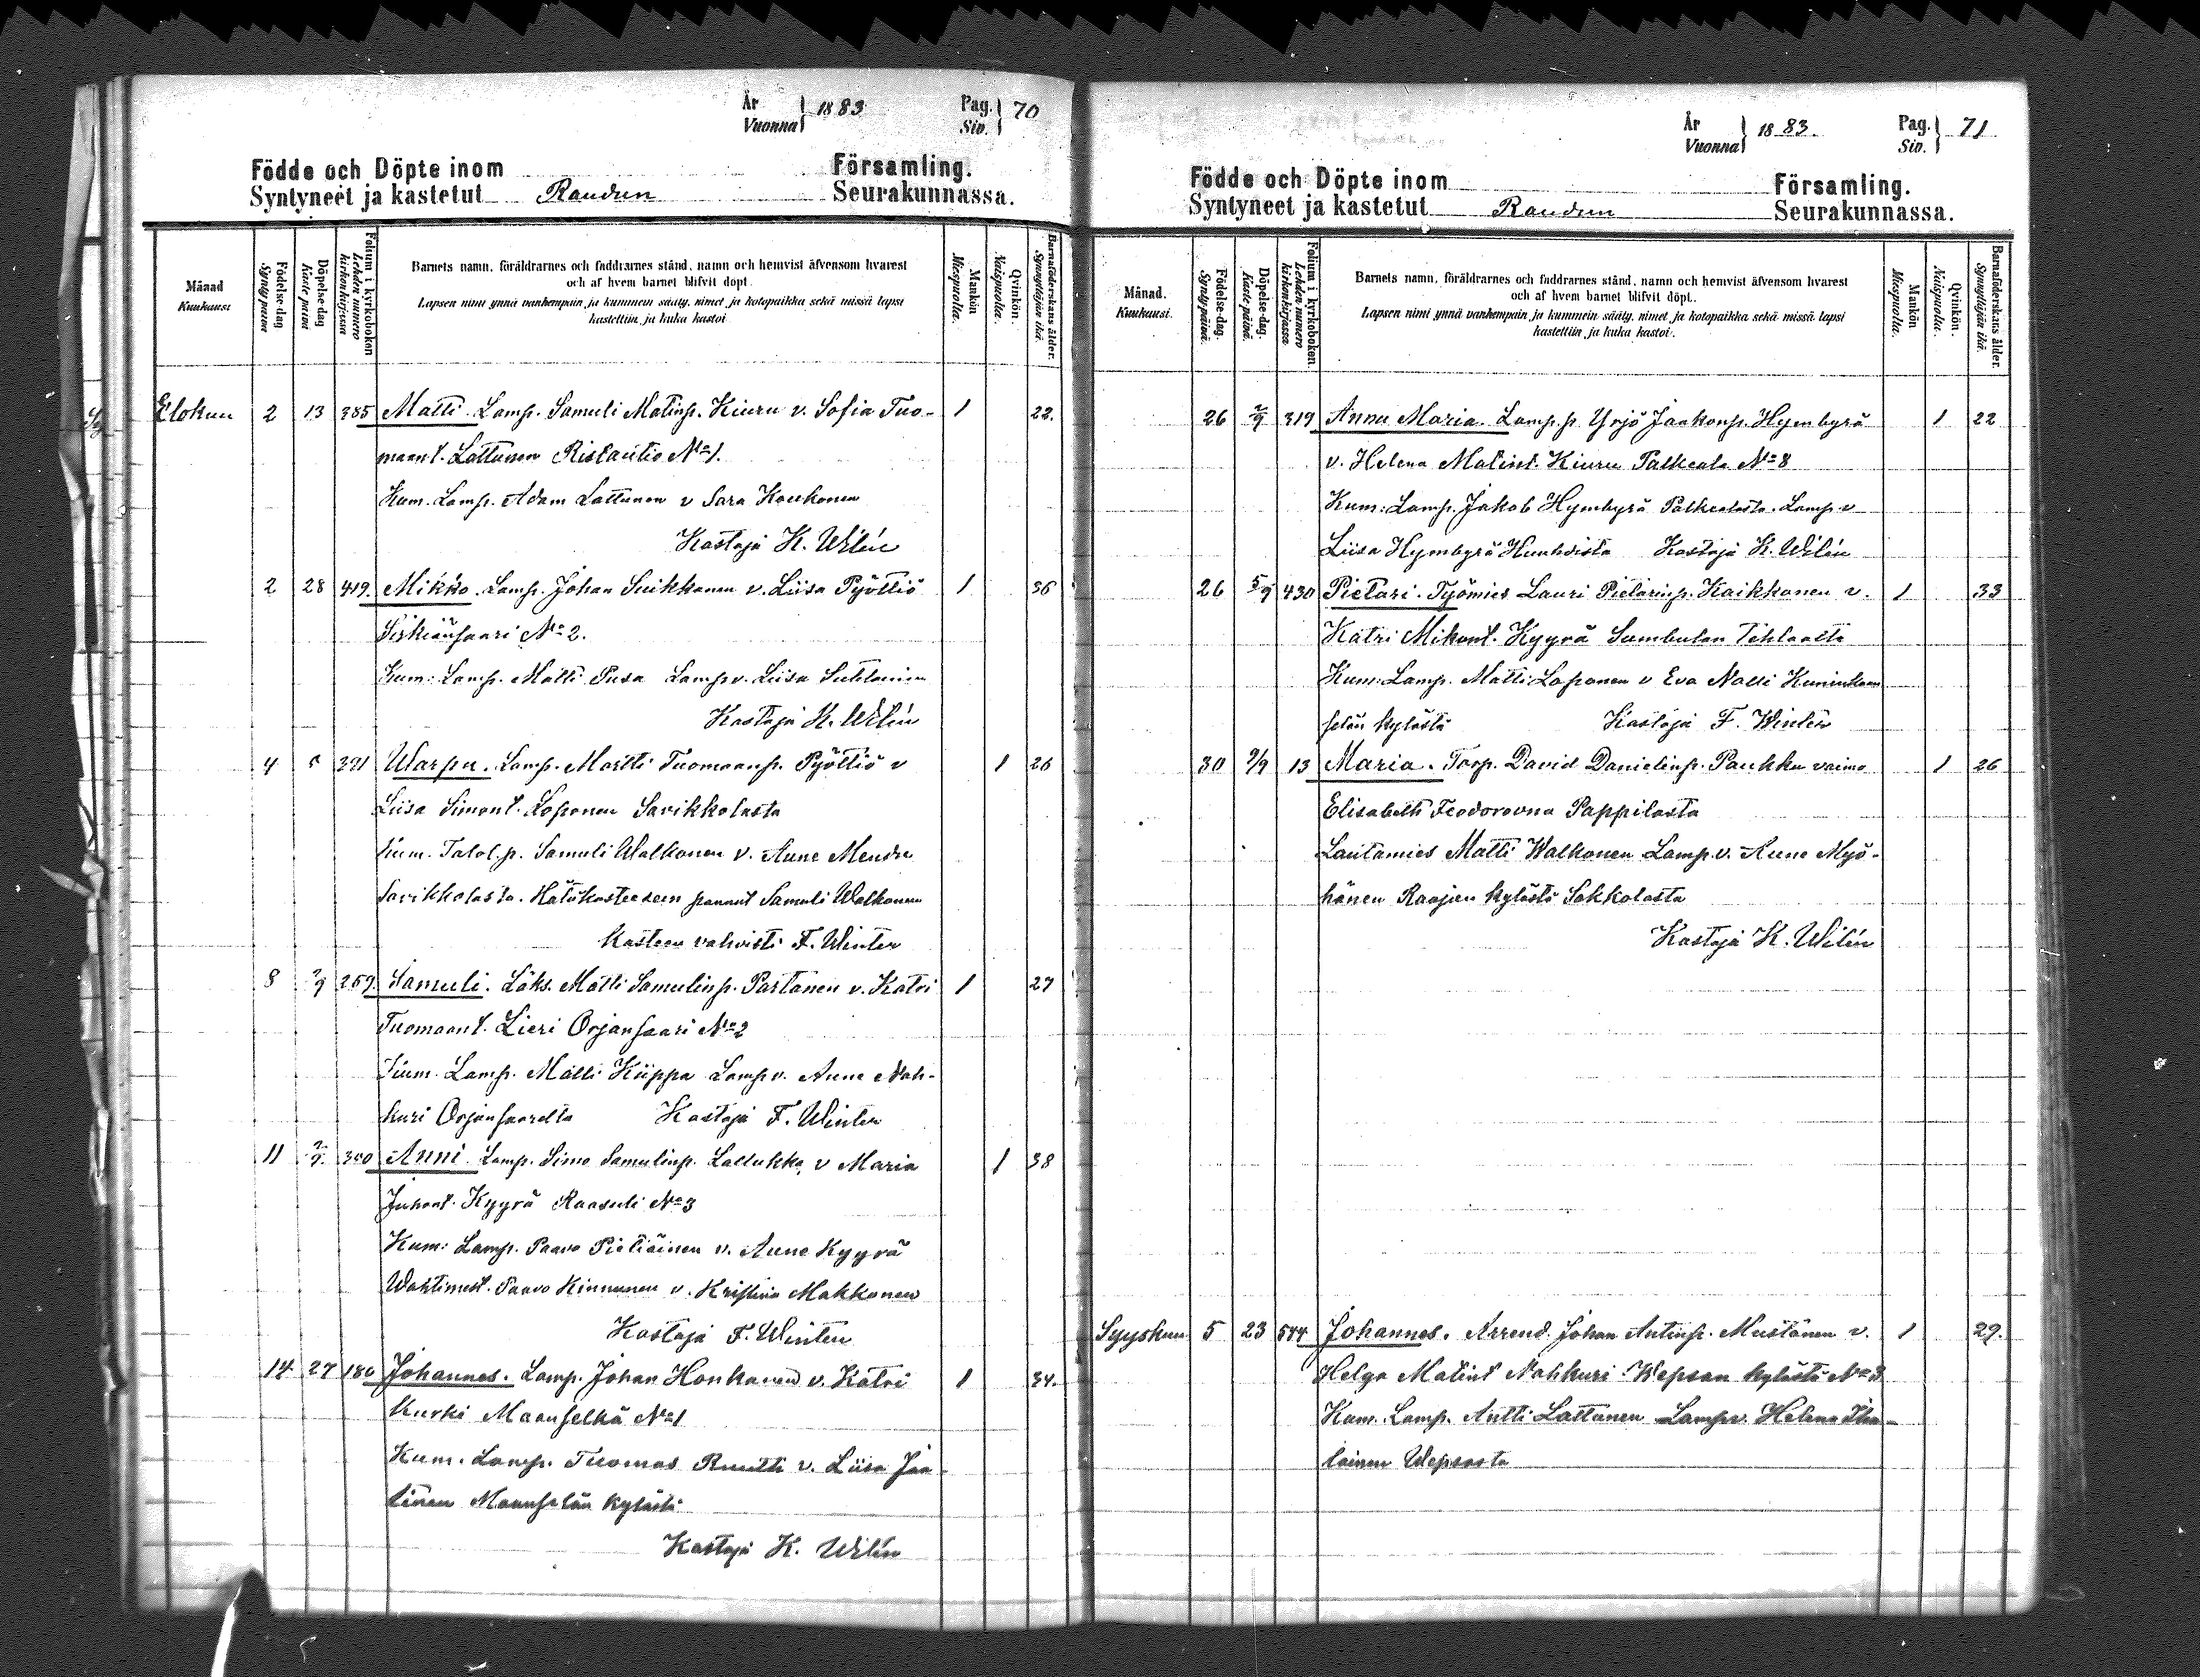 År 1883 Pag. 70
Vuonna Siv.
Födde och Döpte inom Församling.
Syntyneet ja kastetut Raudun Seurakunnassa.
Månad
Kuukausi
Födelse-dag
Syntypäivä
Döpelse-dag
Kastepäivä
Folium i kyrkoboken
Lehden numero kirkonkirjassa
Barnets namn, föräldrarnes och faddrarnes stånd, namn och hemvist äfvensom hvarest
och af hvem barnet blifvit döpt.
Lapsen nimi ynnä vanhempain ja kummein sääty, nimet ja kotopaikka sekä missä lapsi
kastettiin ja kuka kastoi
Mankön
Miespuolia.
Qvinkön.
Naispuolia.
Barnaföderskans ålder.
Synnyttäjän ikä.
Elokuu 2 13 385 Matti. Lamp. Samuli Matinp. Kiuru v. Sofia Tuo- 1 22.
maant. Lattunen Ristautio No 1.
Kum. Lamp. Adam Lattunen v Sara Koukonen
Kastaja K. Wilén
2 28 419. Mikko. Lamp. Johan Suikkanen v. Liisa Pyöttiö 1 36
Sirkiänsaari No 2.
Kum: Lamp. Matti Pusa Lamp v. Liisa
Kastaja K. Wilén
4 321 Warpu. Lamp. Martti Tuomaanp. Pyöttiö v 1 26
Liisa Simont. Loponen Savikkolasta
Kum. Talol.p. Samuli Walkonen v. Anne Mendu
Savikkolasta. Hätäkasteeseen pannut Samuli Walkonen
Kasteen vahvisti F. Winter
8 2/9 259. Samuli. Läks. Matti Samulinp. Partanen v. Katri 1 27
Tuomaant. Lieri Orjansaari No 2
Kum. Lamp. Matti Kiippa Lamp v. Anne Nah-
kuri Orjansaarelta Kastaja F. Winter
11 2/9. 300 Anni. Lamp. Simo Samulinp. Lallukka v Maria 1 38
Juhont. Kyyrä Raasuli No 3
Kum: Lamp. Paavo Pietiäinen v. Anne Kyyrä
Wahtimest. Paavo Kinnunen v. Kristina Makkonen
Kastaja F. Winter
14 27 180 Johannes. Lamp. Johan Honkanen v. Katri 1 34.
Kurki Maanselkä No 1
Kum. Lamp. Tuomas Ruutti v. Liisa Jaa-
tinen Maanselän kylästä
Kastaja K. Wilén
År 1883. Pag. 71
Vuonna Siv.
Födde och Döpte inom Församling.
Syntyneet ja kastetut Raudun Seurakunnassa.
Månad.
Kuukausi.
Födelse-dag.
Syntypäivä.
Döpelse-dag.
Kastepäivä.
Folium i kyrkoboken.
Lehden numero kirkonkirjassa
Barnets namn, föräldrarnes och faddrarnes stånd, namn och hemvist äfvensom hvarest
och af hvem barnet blifvit döpt.
Lapsen nimi ynnä vanhempain ja kummein sääty, nimet ja kotopaikka sekä missä lapsi
kastettiin ja kuka kastoi.
Mankön
Miespuolia.
Qvinkön.
Naispuolia.
Barnaföderskans ålder.
Synnyttäjän ikä.
26 2/9 319 Anna Maria. Lamp. p Yrjö Jaakonp. Hymbyrä 1 22
v. Helena Matint. Kiuru Palkeala No 8
Kum: Lamp. Jakob Hymbyrä Palkealasta. Lamp v
Liisa Hymbyrä Huuhdista Kastaja K. Wilén
26 5/9 430 Pietari. Työmies Lauri Pietarinp. Kaikkonen v. 1 33
Katri Mikont. Kyyrä Sumbulan Tehlaalta
Kum: Lamp. Matti Loponen v Eva Nalli Kuninkaan
selän kylästä Kastaja F. Winter
30 9/9 13 Maria. Torp. David Danielinp. Paukku vaimo 1 26
Elisabeth Feodorovna Pappilasta
Lautamies Matti Walkonen Lamp. v. Anne Myö-
hänen Raajun kylästä Sakkolasta
Kastaja K. Wilén
Syyskuu 5 23 544 Johannes. Arrend. Johan Antinp. Mustonen v. 1 29.
Helga Matint Nahkuri Wepsan kylästä No 3
Kum. Lamp. Antti Lattunen Lamp v. Helena Iha-
lainen Wepsasta